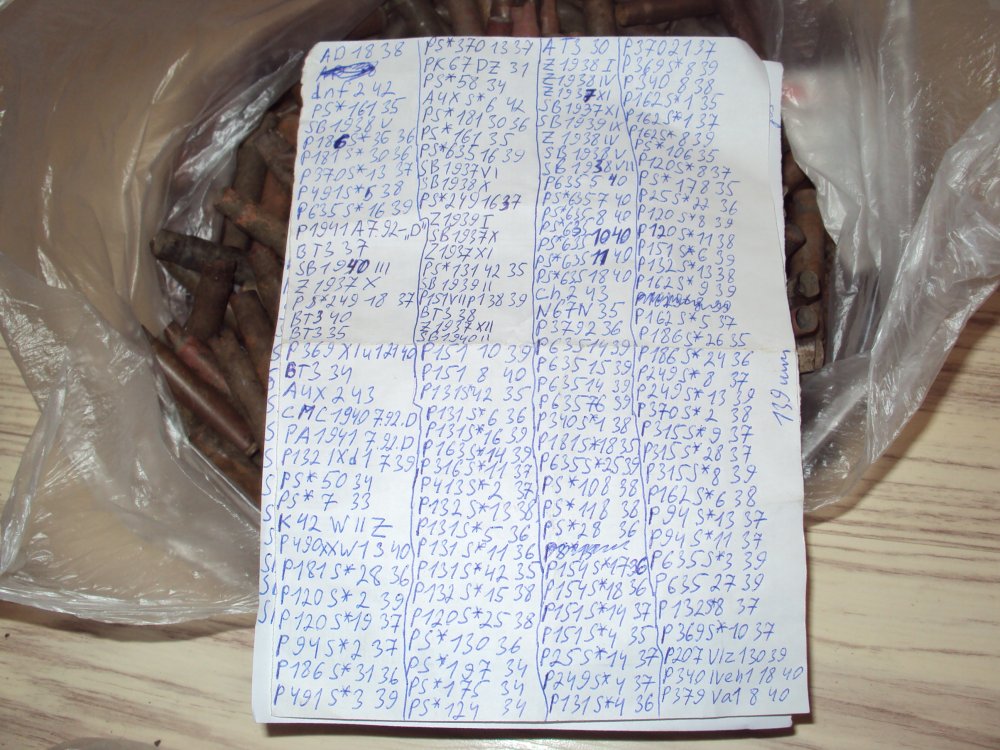 AD 18 38
dnf 2 42
PS*161 35
SB 1938 IV
P186S*36 36
P181S*30 36
P370S*13 37
P491S*5 38
P635S*16 39
P1941 A7.92-„D"
BT3 37
SB 1940 III
Z 1937 X
PS*249 18 37
BT3 40
BT3 35
P369 XIu12140
BT3 34
AUX 2 43
CMC1940 7.92.D
PA1941 7.92.D
P132 IXd1 7 39
PS*50 34
PS*7 33
K42 W II Z
P490xxW1 3 40
P181S*28 36
P120S*2 39
P120S*19 37
P94S*2 37
P186S*31 36
P491S*3 39
PS*370 13 37
PK67DZ 31
PS*58 34
AUX S*6 42
PS*181 30 36
PS*161 35
PS*635 16 39
SB1937VI
SB1938X
PS*249 16 37
Z1939 I
SB1937X
Z1937XI
PS*131 42 35
SB1939 II
P151VIIP138 39
BT3 38
Z1937XII
SB1940 II
P151 10 39
P151 8 40
P131S42 35
P131S*6 36
P131S*16 39
P163S*14 39
P316S*11 37
P413S*2 37
P132S*13 38
P131S*5 36
P131S*11 36
P131S*42 35
P132S*15 38
P120S*25 38
PS*130 36
PS*197 34
PS*175 34
PS*124 34
AT3 30
Z1938 I
Z1938IV
Z1937XI
SB1937X
SB1939IV
Z 1938 IV
SB 1938
SB 1938VII
P635 5 40
PS*635 7 40
PS*635 8 40
PS*635 10 40
S*635 11 40
PS*635 18 40
Ch.Z 43
N67N 35
P379 2 36
P635 11 39
P635 15 39
P635 14 39
P635 76 39
P340S*1 38
P181S*18 35
P635S*25 39
PS*108 38
PS*118 36
PS*28 36
P154S*17 36
P154S*18 36
P151S*14 37
P151S*4 35
P25S*14 37
P249S*4 37
P131S*4 36
P370 21 37
P369S*8 39
P340 8 38
P162S*1 35
P162S*1 37
P162S*8 39
PS*106 35
P120S*8 37
PS*178 35
P25S*22 36
P120S*8 39
P120S*11 38
P151S*6 39
P132S*13 38
P162S*9 39
P162S*5 37
P186S*26 35
P186S*24 36
P249S*8 37
P249S*13 39
P370S*2 38
P315S*9 37
P315S*28 37
P315S*8 39
P162S*6 38
P94S*13 37
P94S*11 37
P635S*3 39
P635 27 39
P132S*8 37
P369S*10 37
P207 VIz1 30 39
P340 IVeh1 18 40
P379 Va1 8 40